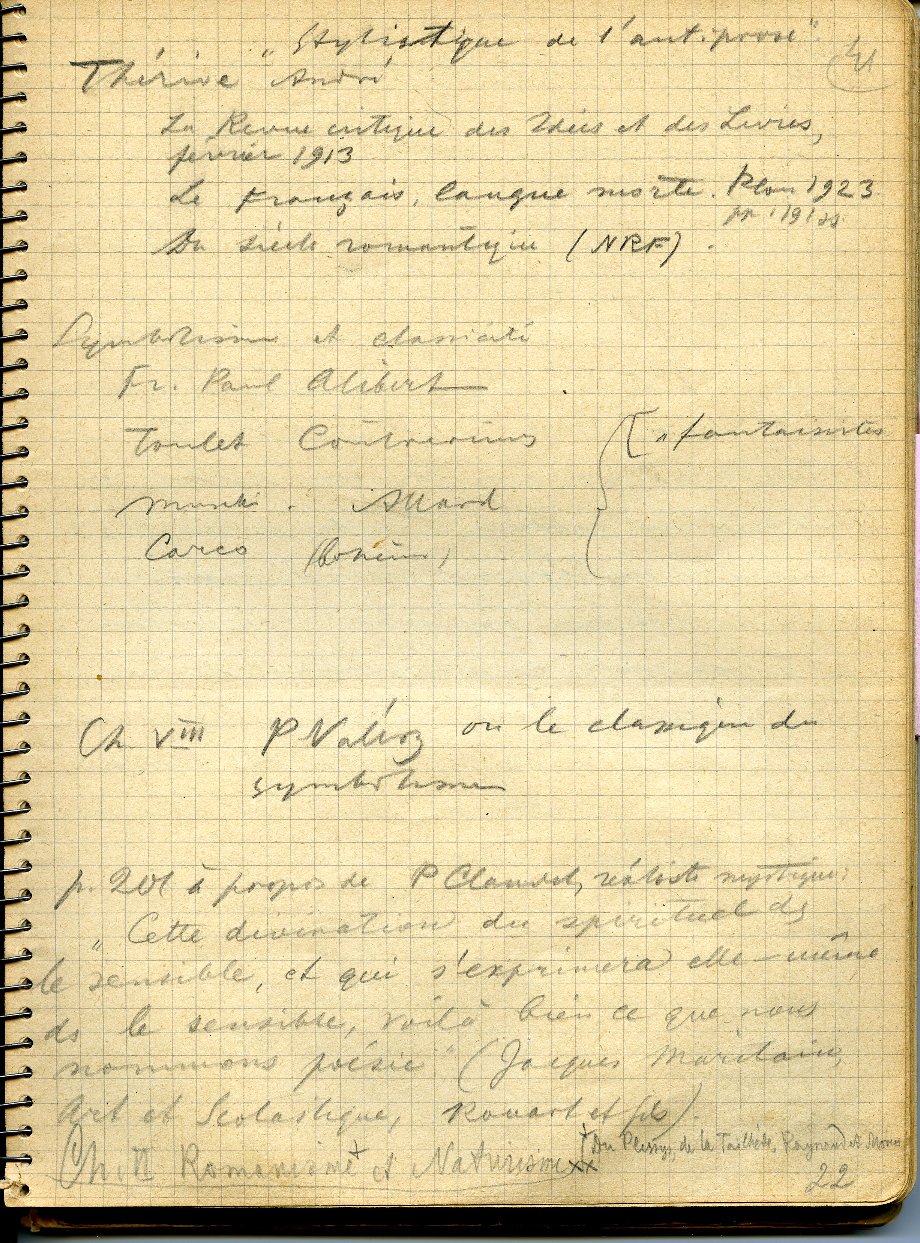 „Stylistique de l'antiprose"
Thérive André
La Revue critique des Idées et des Livres,
février 1913
Le Français, langue morte. Plon 1923
pp. 191 ss.
Du siècle romantique (NRF).
Symbolisme et classicité
Fr. Paul Alibert
Toulet
„fantaisistes
Allard
Carco (bohème)
Ch VIII P Valéry ou le classique du
symbolisme
p. 201 à propos de P Claudel, réaliste mystique:
„Cette divination du spirituel ds
le sensible, et qui s'exprimera elle-même
ds le sensible, voilà bien ce que nous
nommons poésie" (Jacques Maritain,
Art et Scolastique, Rouart et fils).
+ Du Plessys, de la Tailhède, Raynaud et Moréas
Ch. II Romanisme+ et Naturisme xx
22